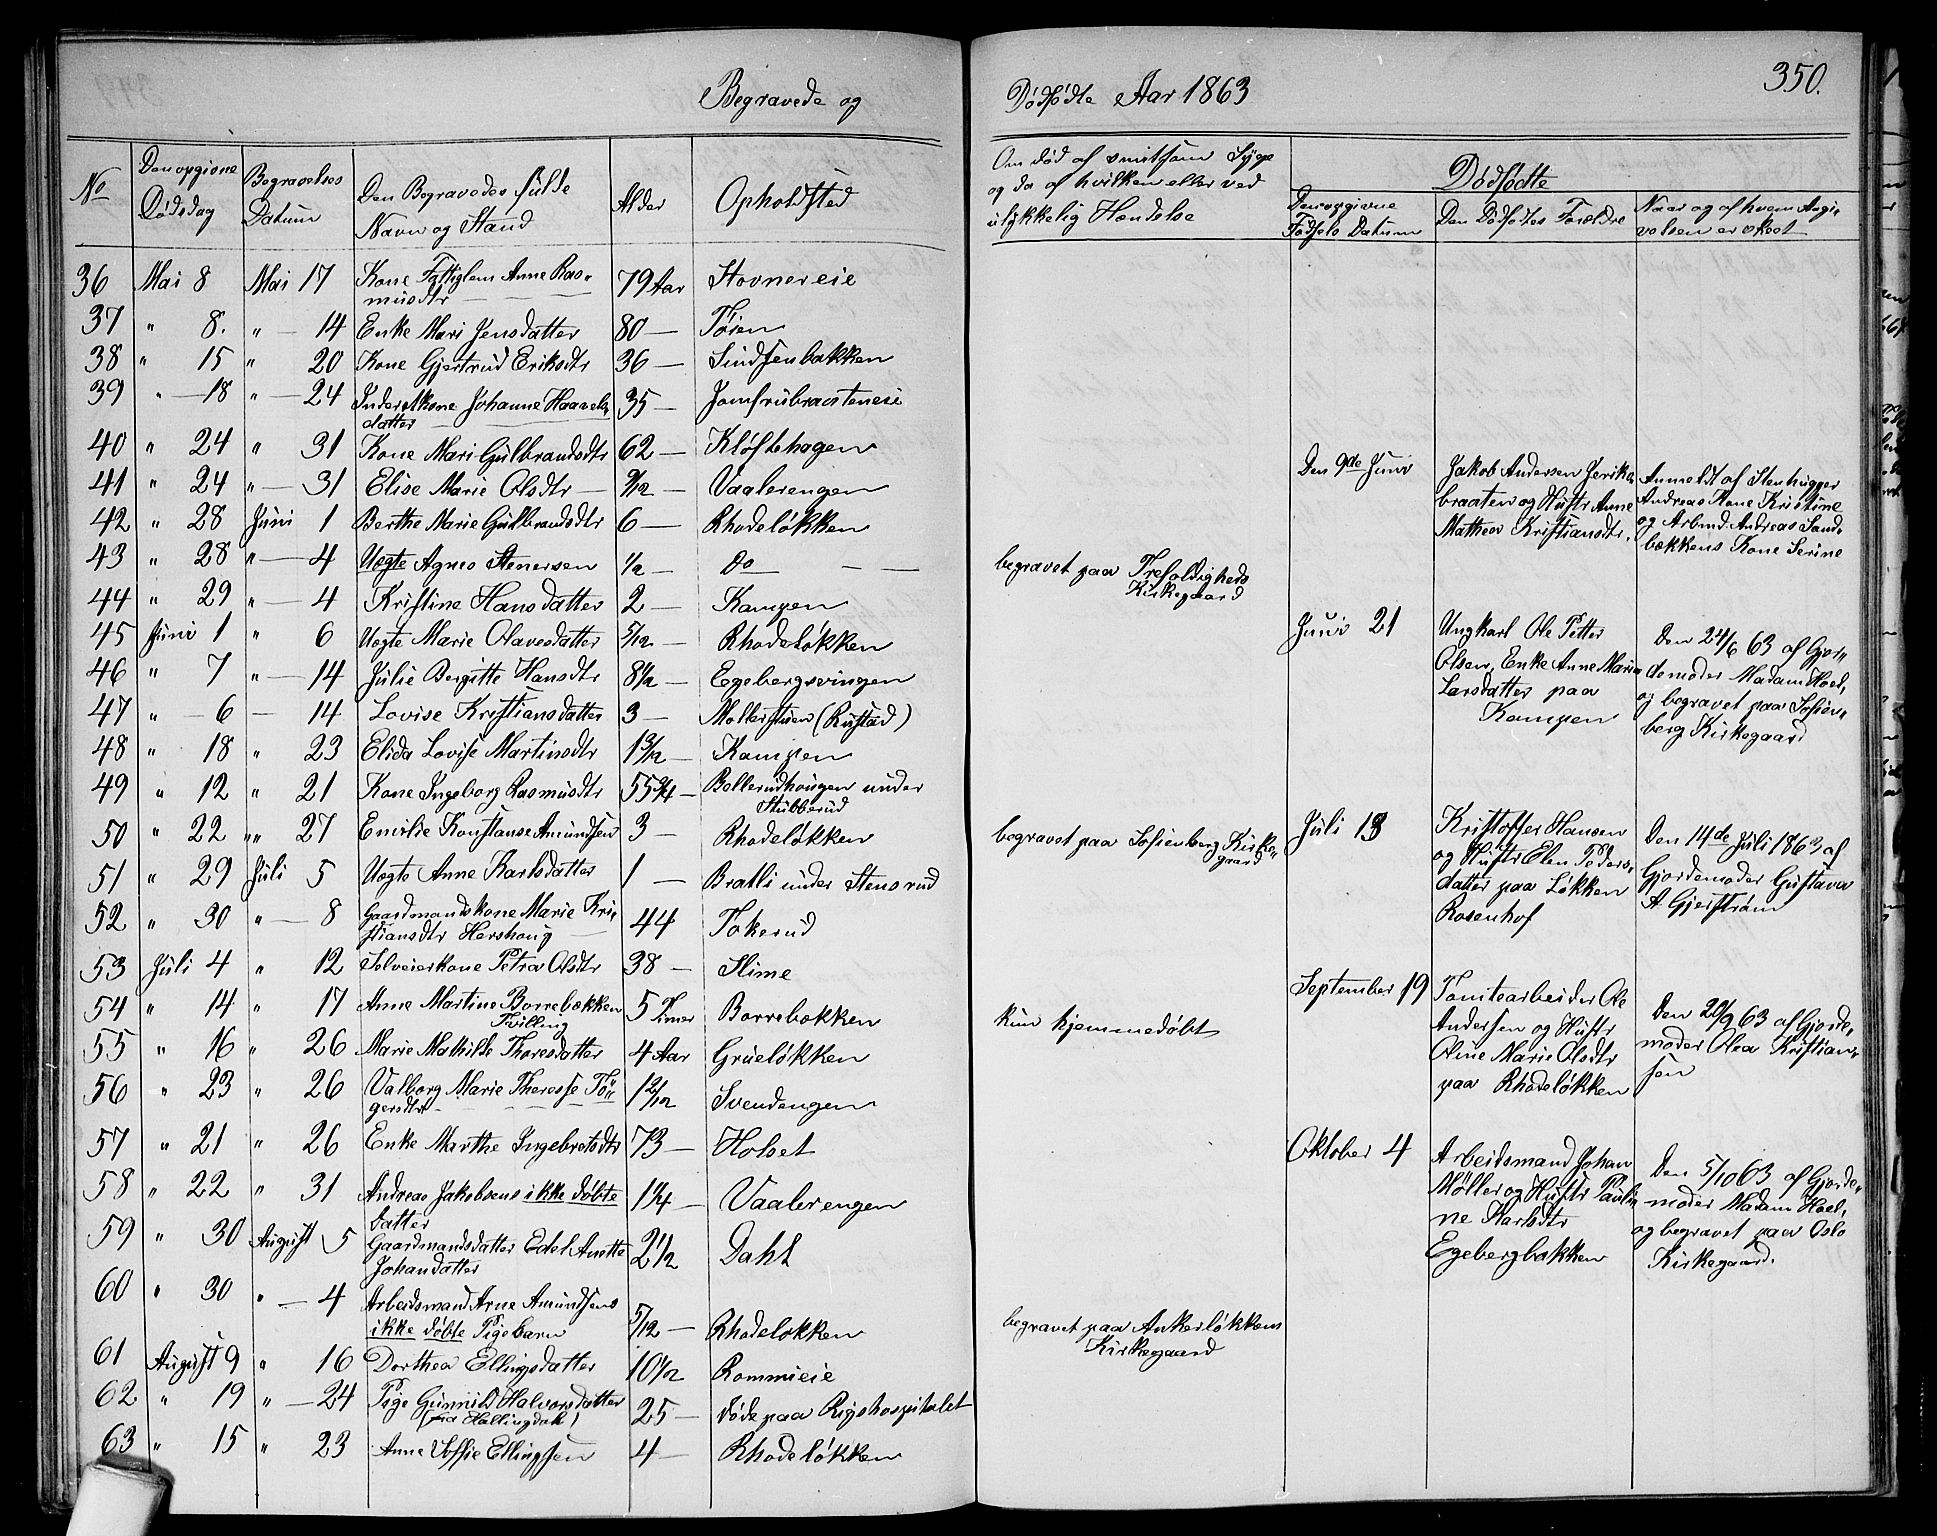 Begravede og
No
Den opgivne
Dødsdag
Begravelses
Datum
Den Begravedes fulde
Navn og Stand
Alder
Opholdsted
36 Mai 8 Mai 17 Kone Anne Ras-
musdtr 79 Aar Hovnereie
37 " 8. " — 14 Enke Mari Jensdatter 80 — Tøien
38 " 15 " 20 Kone Gjertrud Eriksdtr 36 — Sindsenbakken
39 " — 18 " — 24 Inderstkone Johanne Haavels-
datter 35 — Jomfrubraateneie
40 " 24 " 31 Kone Mari Gulbrandsdtr 62 — Kløftehagen
41 " 24 " — 31 Elise Marie Olsdtr — 9/12 — Vaalerengen
42 " 28 Juni 1 Berthe Marie Gulbrandsdtr 6 — Rhodeløkken
43 " 28 " — 4 Uegte Agnes Stenersen 1/2 — Do — — —
44 " 29 " — 4 Kristine Hansdatter 2 — Kampen
45 Juni 1 " 6 Uegte Marie Olavesdatter 5/12 — Rhodeløkken
46 " 7 " — 14 Julie Bergitte Hansdtr 8 1/2 — Egebergsvingen
47 " — 6 — 14 Lovise Kristiansdatter 3 — Mollerstuen (Rustad)
48 " 18 " 23 Elida Lovise Martinsdtr 1 3/12 — Kampen
49 " 12 " 21 Kone Ingeborg Rasmusdtr 55 3/4 — Bollerudhougen under
Stubberud
50 " 22 " " 27 Emilie Konstanse Amundsen 3 — Rhodeløkken
51 " 29 Juli 5 Uegte Anne Karlsdatter 1 — Bratli under Stensrud
52 " 30 " — 8 Gaardmandskone Marie Kri-
stiansdtr Hershoug — 44 Tokerud
53 Juli 4 " 12 Selveierkone Petra Olsdtr 38 — Slime
54 " 14 " 17 Anne Martine Borrebækken
Tvilling 5 Timer Borrebækken
55 " 16 " 26 Marie Mathilde Thoresdatter 4 Aar Grueløkken
56 " 23 " 26 Valborg Marie Therese Tør-
gersdtr 1 2/12 — Svendengen
57 " 21 " 26 Enke Marthe Ingebretsdtr 73 — Holset
58 " 22 " 31 Andreas Jakobsens ikke døbte
datter 1 1/4 — Vaalerengen
59 " 30 August 5 Gaardmandsdatter Edel Anette
Johandatter 2 1/2 Dahl
60 " 30 " — 4 Arbeidsmand Arne Amundsens
ikke døbte Pigebarn 5/12 — Rhodeløkken
61 August 9 " 16 Dorthea Ellingsdatter 10 1/2 Rommieie
62 " 19 " — 24 Pige Gunnild Halvorsdatter
(fra Hallingdal) 25 — døde paa Rigshospitalet
63 " 15 " 23 Anne Sofie Ellingsen 4 — Rhodeløkken
Dødfødte Aar 1863
350.
Om død af smitsom Syge
og da af hvilken eller ved
ulykkelig Hændelse
Dødfødte
Den opgivne
Fødsels Datum
Den Dødfødtes Forældre
Naar og af hvem Angi-
velsen er skeet
begravet paa Trefoldigheds
Kirkegaard
begravet paa Sofienberg Kirke-
gaard
kun hjemmedøbt
begravet paa Ankerløkkens
Kirkegaard
Den 9de Juni
Jakob Andersen
braaten og Hustr Anne
Mathea Kristiansdtr.
Anmeldt af Stenhugger
Andreas Kone Kristine
og Arbmd Andreas Sand-
bækkens Kone Serine
Juni 21
Ungkarl Ole Petter
Olsen, Enke Anne Maria
Larsdatter paa
Kampen
Den 24/6 63 af Gjor-
demoder Madam Hoel,
og begravet paa Sofien-
berg Kirkegaard
Juli 13
Kristoffer Hansen
og Hustr Elen Peders-
datter paa Løkken
Rosenhof
Den 14de Juli 1863 af
Gjordemoder Gustava
A. Gjerstrøm
September 19
Tomtearbeider Ole
Andersen og Hustr
Oline Marie Olsdtr
paa Rhodeløkken
Den 20/9 63 af Gjorde-
moder Olea Kristian-
sen
Oktober 4
Arbeidsmand Johan
Møller og Hustr Pauli-
ne Karlsdtr
Egebergbakken
Den 5/10 63 af Gjorde-
moder Madam Hoel,
og begravet paa Oslo
Kirkegaard.